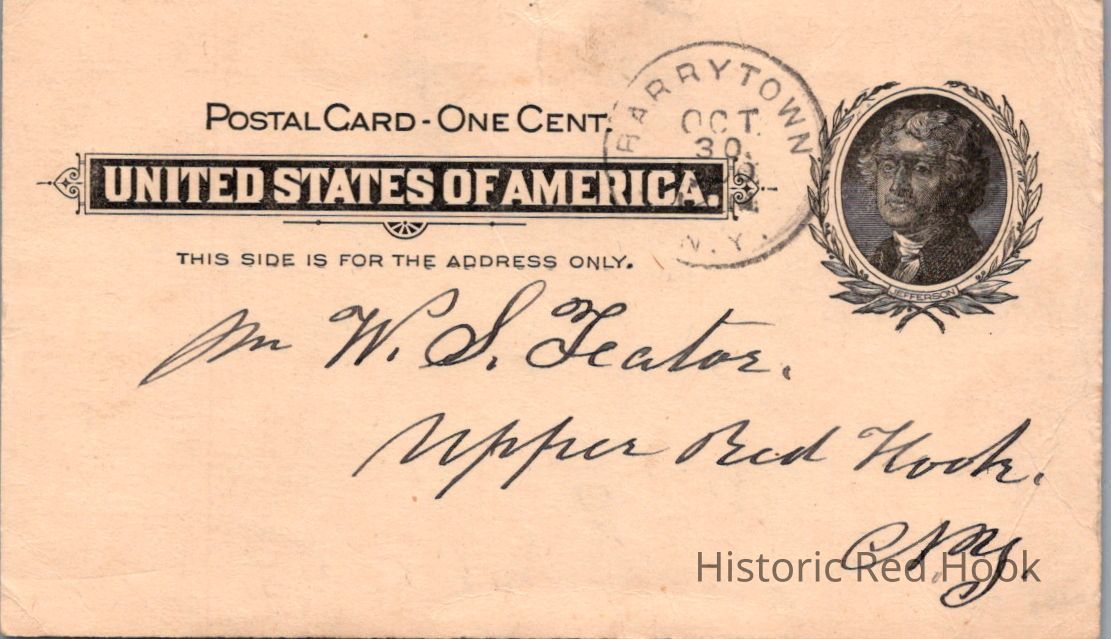 POSTAL CARD - ONE CENT.
UNITED STATES OF AMERICA.
THIS SIDE IS FOR THE ADDRESS ONLY.
BARRYTOWN
OCT.
30
N.Y.
JEFFERSON
Mr W. S. Teator.
Upper Red Hook.
N.Y.
Historic Red Hook